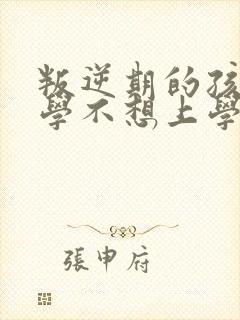 叛逆期的孩
學不想上學
張申府